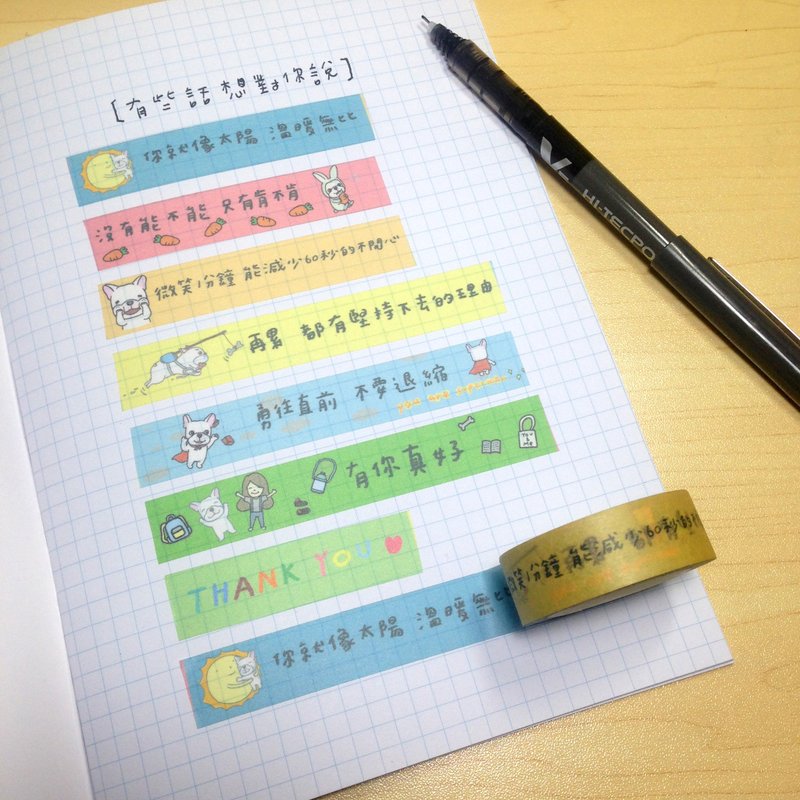 [有些話想對你說]
你就像太陽 溫暖無比
沒有能不能 只有肯不肯
微笑1分鐘 能減少60秒的不開心
再累 都有堅持下去的理由
勇往直前 不要退縮
有你真好
THANK YOU
你就像太陽 溫暖無比
微笑1分鐘 能減少60秒的不
V7
HI-TECPO